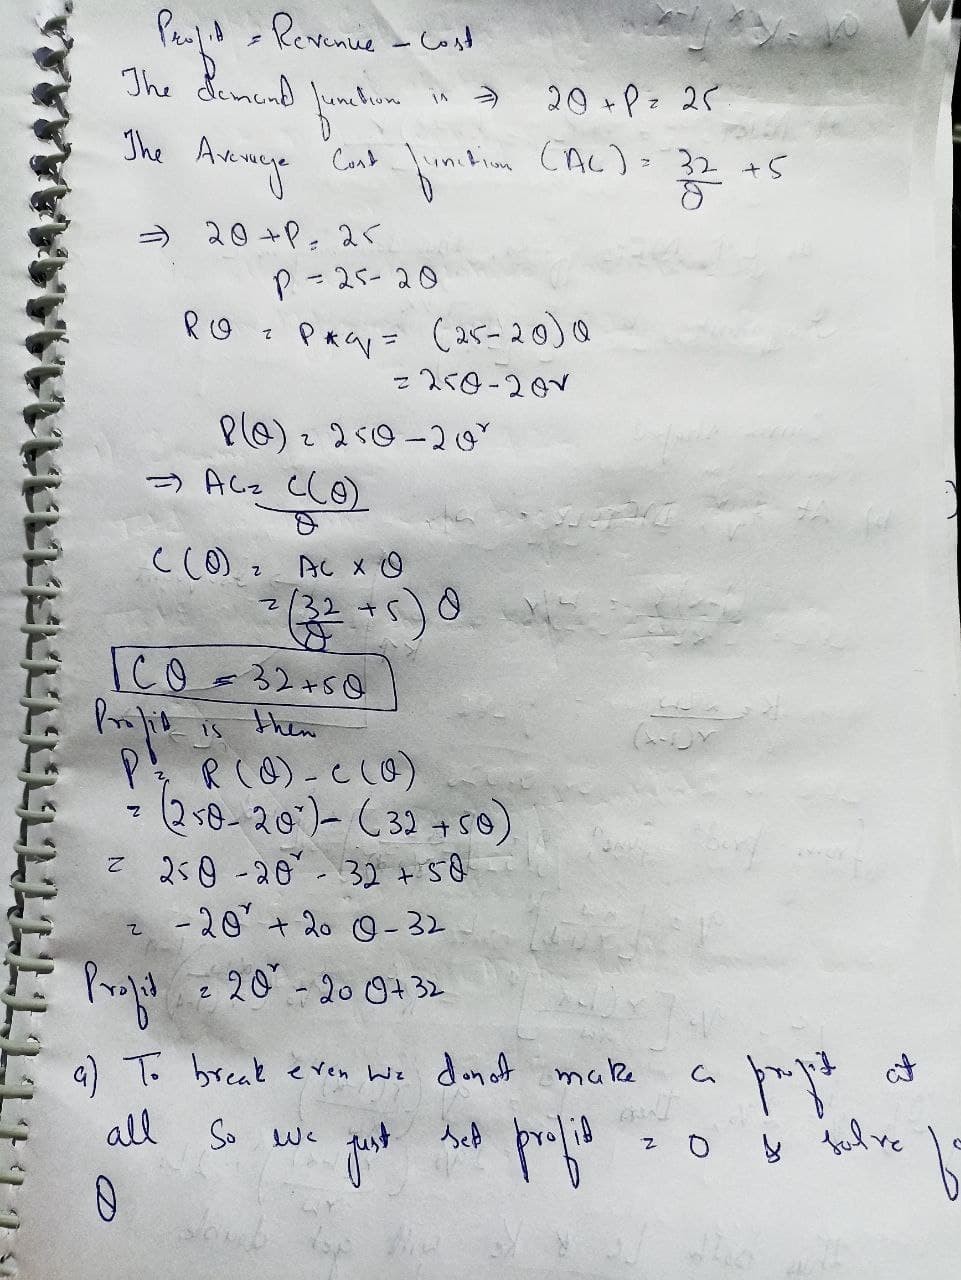 Profit = Revenue - Cost
The demand function is ⇒ 2Q + P = 25
The Average Cost function (AC) = 32/Q + 5
⇒ 2Q + P = 25
P = 25 - 2Q
RQ = P * q = (25 - 2Q)Q
= 25Q - 2Q²
R(Q) = 25Q - 2Q²
⇒ AC = C(Q)/Q
C(Q) = AC × Q
= (32/Q + 5) Q
CQ = 32 + 5Q
Profit is then
P = R(Q) - C(Q)
= (25Q - 2Q²) - (32 + 5Q)
= 25Q - 2Q² - 32 + 5Q
= -2Q² + 20 Q - 32
Profit = 2Q² - 20 Q + 32
a) To break even we donot make a profit at
all So we just set profit = 0 & solve
Q